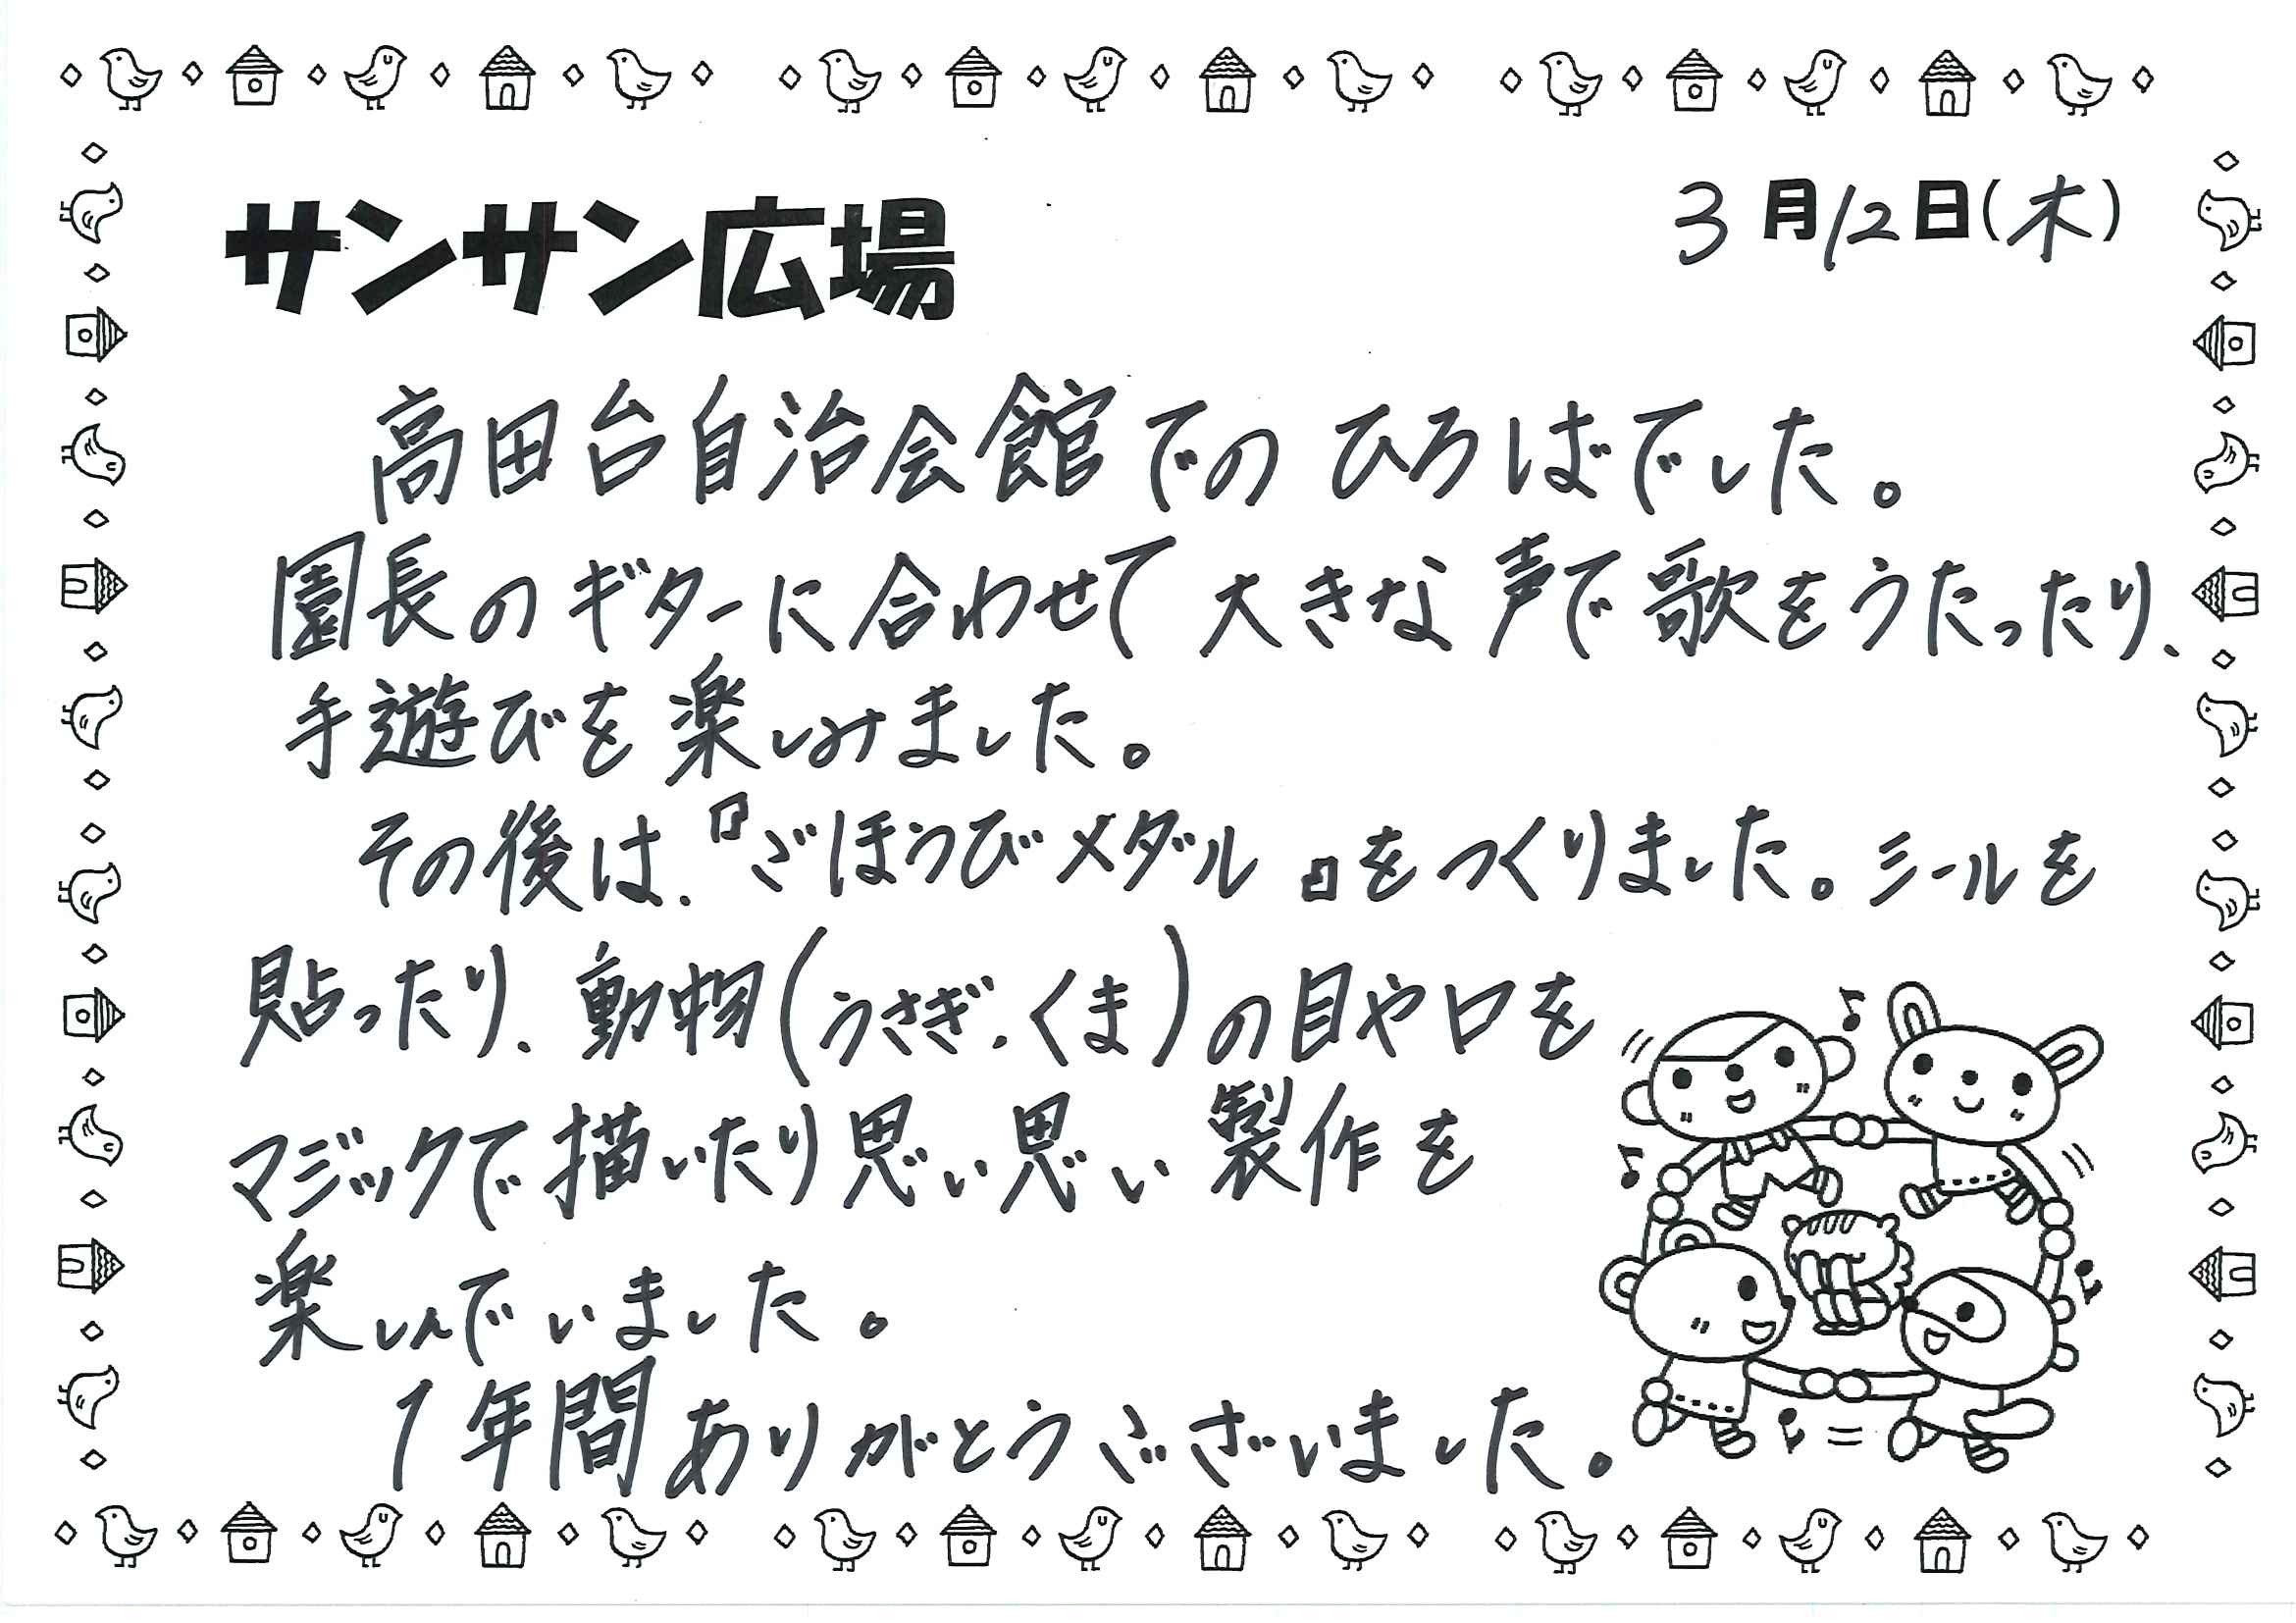 サンサン広場
3月12日(木)
高田台自治会館でのひろばでした。
園長のギターに合わせて大きな声で歌をうたったり、
手遊びを楽しみました。
その後は、『ごほうびメダル』をつくりました。シールを
貼ったり、動物(うさぎ・くま)の目や口を
マジックで描いたり思い思い製作を
楽しんでいました。
1年間ありがとうございました。